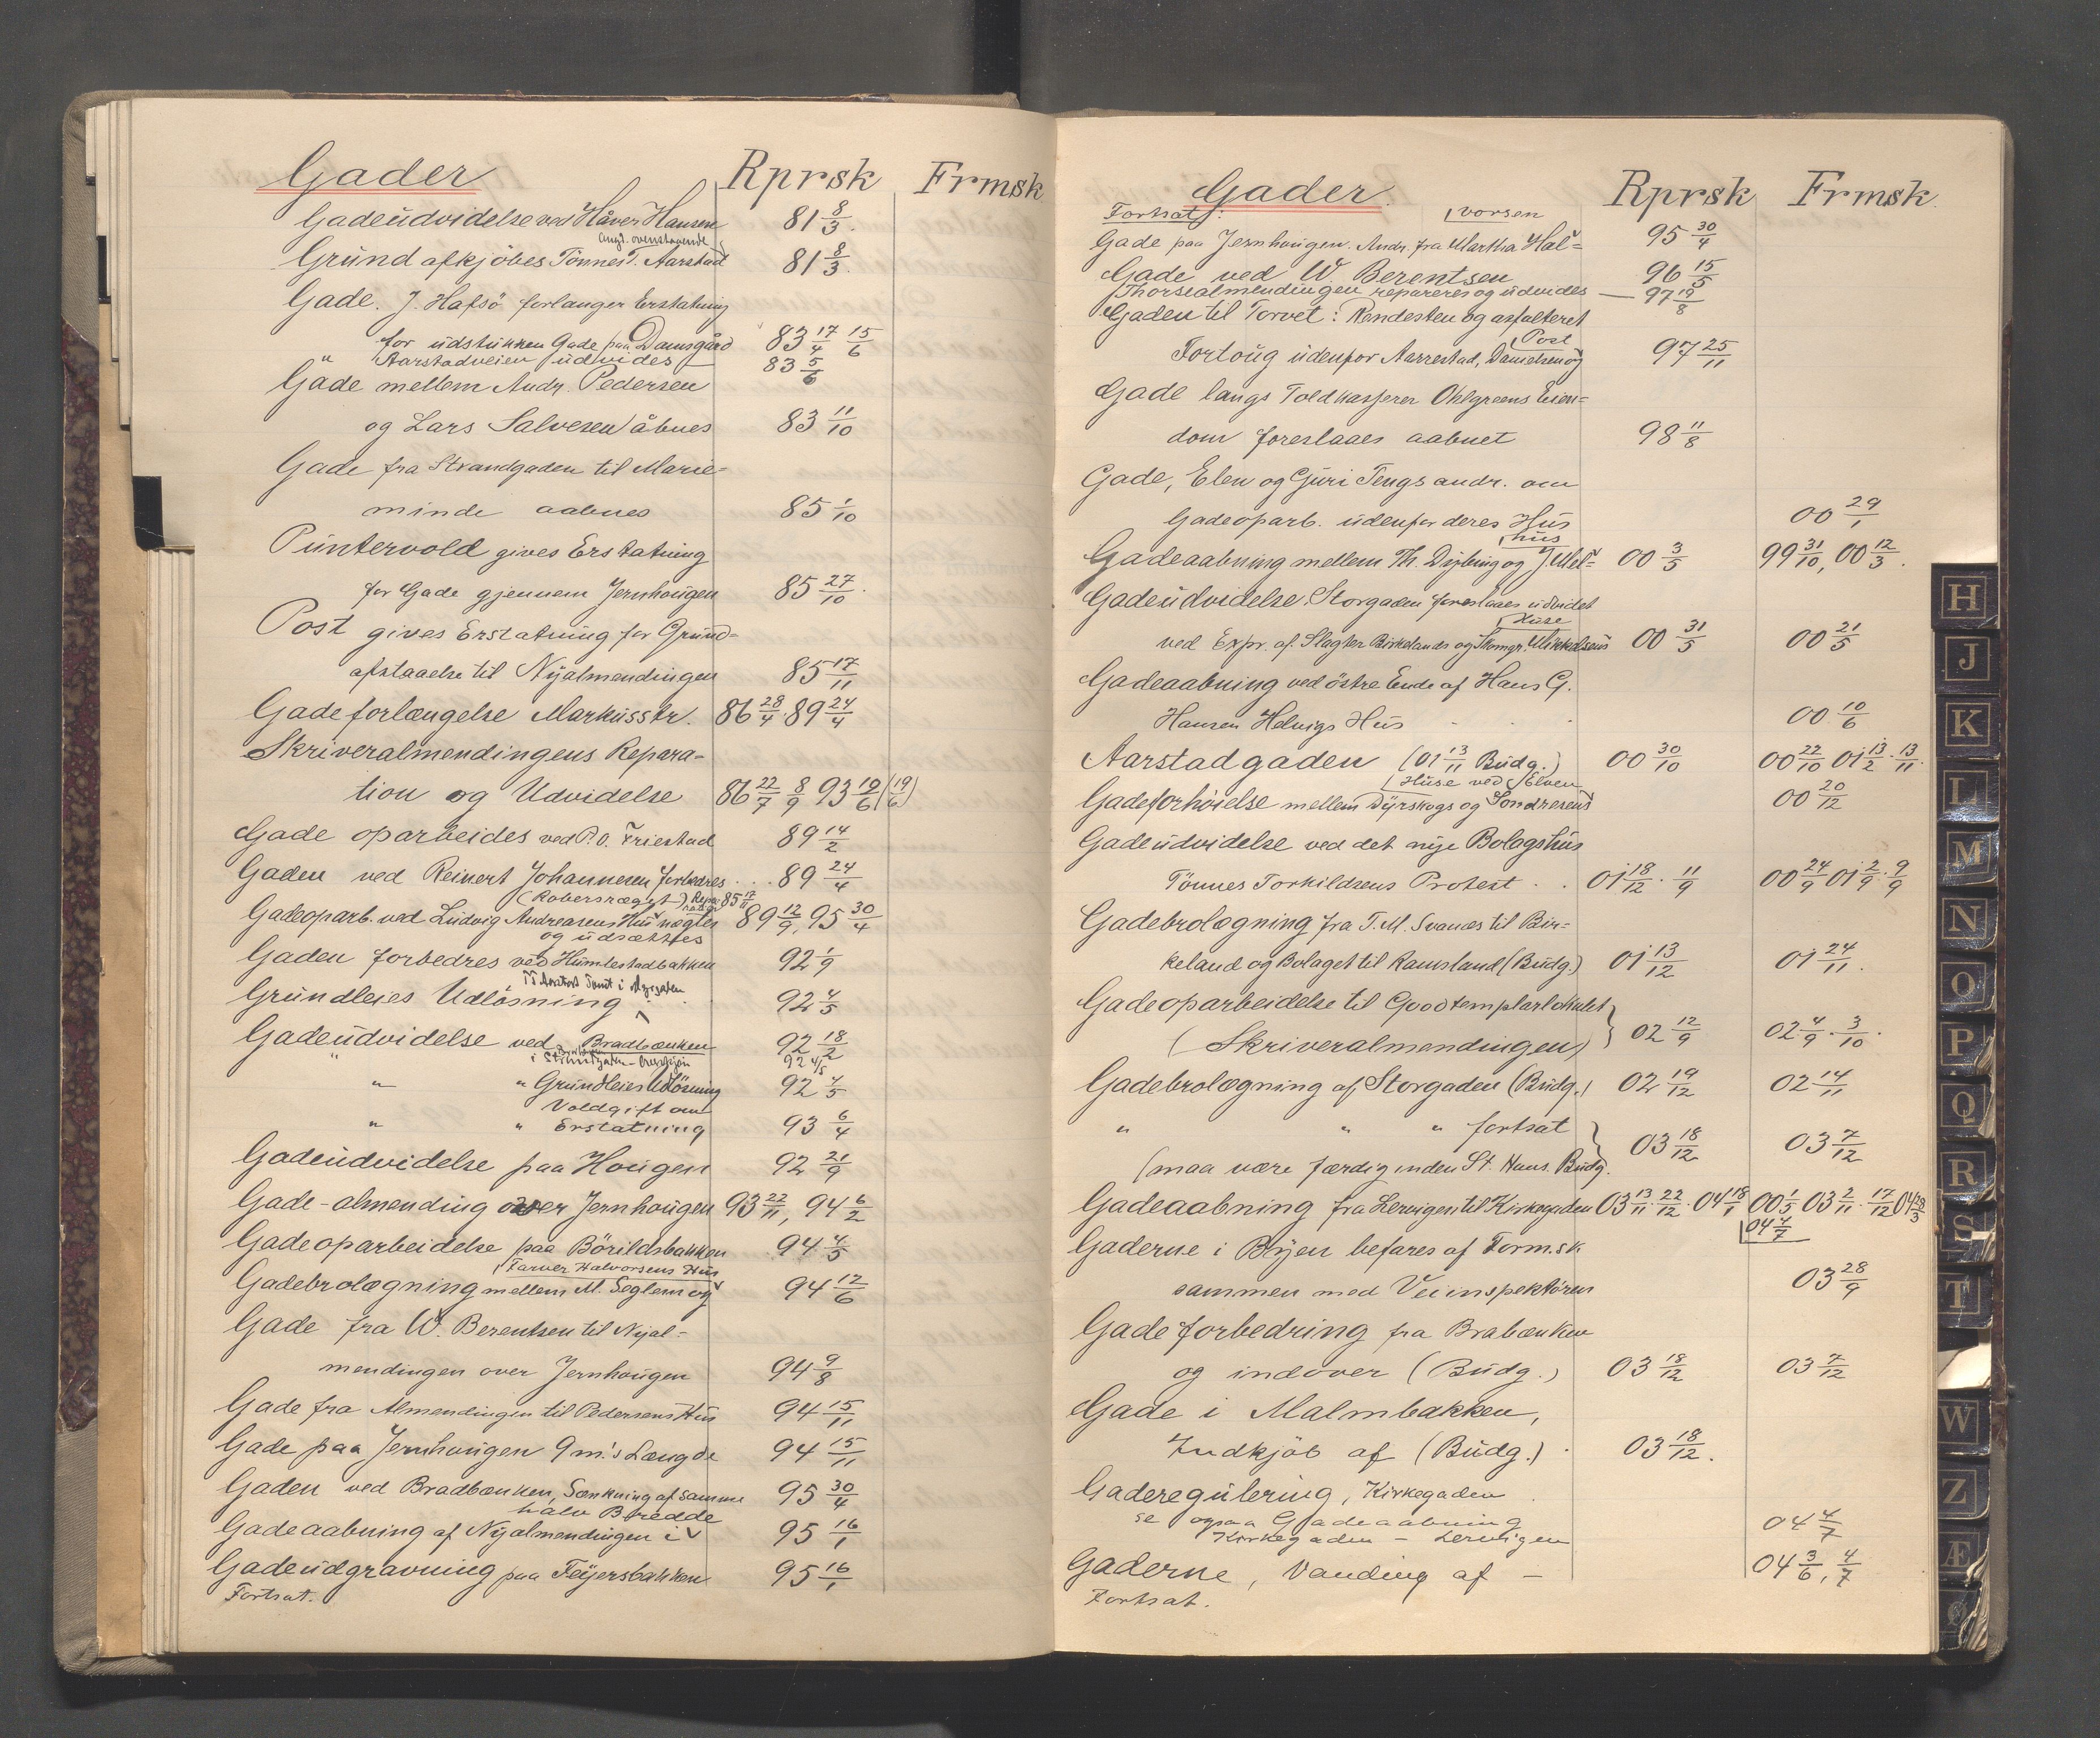 Gader Rprsk Frmsk
Gadeudvidelse ved Håver Hansen 81 8/3.
angd. ovenstaaende
Grund afkjöbes Tönnes T. Aarstad 81 8/3.
Gade. J. Hafsö forlanger Erstatning
for udstukken Gade paa Damsgård 83 17/4 15/6
" Aarstadveien udvides 83 5/6
Gade mellem Andr. Pedersen
og Lars Salvesen åbnes 83 11/10
Gade fra Strandgaden til Marie-
minde aabnes 85 1/10
Puntervold gives Erstatning
for Gade gjennem Jernhougen 85 27/10.
Post gives Erstatning for Grund-
afstaaelse til Nyalmendingen 85 17/11
Gadeforlængelse Markusstr. 86 28/4. 89 24/4
Skriveralmendingens Repara-
tion og Udvidelse 86 22/7 8/9 93 19/6 (19/6)
Gade oparbeides ved P. O. Friestad 89 14/2
Gaden ved Reinert Johannesen forbedres . . 89 24/4
(Robersræget) 85 17/11
Gadeoparb. ved Ludvig Andreasens Hus nægtes 89 12/9, 95 30/4
og udsættes
Gaden forbedres ved Humlestadbakken 92 1/9
Grundleies Udlösning 92 4/5
Gadeudvidelse ved Bradbænken 92 18/2
" i 92 4/5
" " Grundleies Udlösning 92 4/5
Voldgift om
" " Erstatning 93 6/4
Gadeudvidelse paa Hougen 92 21/9
Gade-almending over Jernhougen 93 22/11, 94 6/2
Gadeoparbeidelse paa Börildsbakken 94 4/5
Farver Halvorsens Hus
Gadebrolægning mellem M. Seglem og 94 12/6
Gade fra W. Berentsen til Nyal-
mendingen over Jernhougen 94 9/8
Gade fra Almendingen til Pedersens Hus 94 15/11
Gade paa Jernhougen 9 m.'s Længde 94 15/11
Gaden ved Bradbænken, Sænkning af samme 95 30/4
halv Bredde
Gadeaabning af Nyalmendingen i 95 16/1
Gadeudgravning paa Feyersbakken 95 16/1
Fortsat.
Gader. Rprsk Frmsk.
Fortsat: vorsen
Gade paa Jernhougen. Andr. fra Martha Hal- 95 30/4
Gade ved W. Berentsen 96 15/5
Thorsealmendingen repareres og udvides — 97 19/8
Gaden til Torvet: Rendesten og asfalteret
Post
Fortoug udenfor Aarrestad, Danielsen og 97 25/11
Gade langs Toldkasserer Ohlgreens Eien-
dom foreslaaes aabnet 98 11/8
Gade, Elen og Guri Tengs andr. om
Gadeoparb. udenfor deres Hus 00 29/1
hus
Gadeaabning mellem Th. Dybing og J Mel- 00 3/5 99 31/10, 00 12/3.
Gadeudvidelse. Storgaden foreslaaes udvidet
Huse
ved Expr. af Slagter Birkelands og Skomgr. Mikkelsens 00 31/5 00 21/5
Gadeaabning ved östre Ende af Hans G.
Hansen Helvigs Hus . . . 00 10/6
Aarstadgaden (01 13/11 Budg.) 00 30/10 00 22/10 01 13/2. 13/11.
Huse ved Elven
Gadeforhöielse mellem Dyrskogs og Sondresens 00 20/12
Gadeudvidelse ved det nye Bolagshus
Tönnes Torkildsens Protest . . 01 18/12. 11/9 00 24/9 01 2/9. 9/9
Gadebrolægning fra T. M. Svanes til Bir-
keland og Bolaget til Ramsland (Budg.) 01 13/12 01 24/11.
Gadeoparbeidelse til Goodtemplarlokalet
(Skriveralmendingen) 02 12/9 02 4/9. 3/10.
Gadebrolægning af Storgaden (Budg.) 02 19/12 02 14/11
" " " fortsat
(maa være færdig inden St. Hans. Budg. 03 18/12 03 7/12
Gadeaabning fra Lervigen til Kirkegaden 03 13/11. 22/12. 04 18/1 00 1/5 03 2/11. 17/12 04 28/3
04 4/7
Gaderne i Byen befares af Formsk.
sammen med Veiinspektören 03 28/9
Gadeforbedring fra Brabænken
og indover (Budg.) 03 18/12 03 7/12
Gade i Malmbakken,
Indkjöb af (Budg.) . 03 18/12.
Gaderegulering, Kirkegaden
se ogsaa Gadeaabning 04 4/7
Kirkegaden - Lervigen
Gaderne, Vanding af — 04 3/6, 4/7
Fortsat.
H
J
K
L
M
N
O
P
Q
R
S
T
W
Z
Æ
Ø